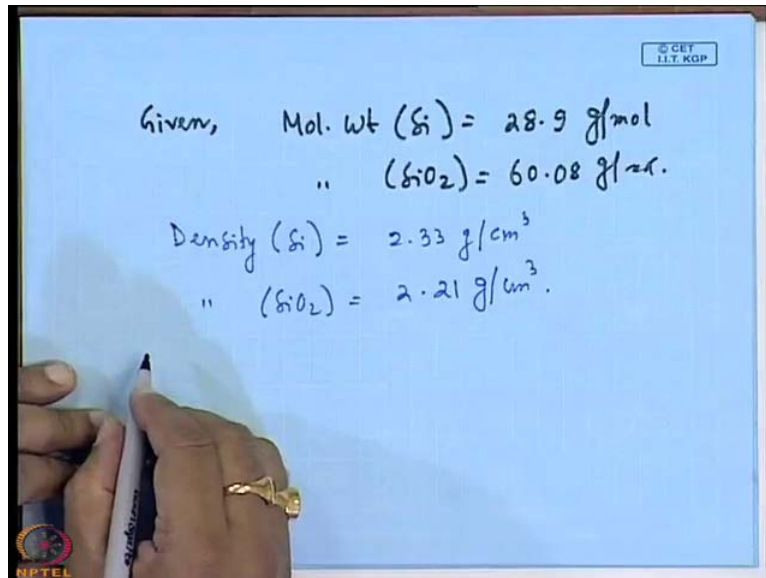 © CET
I.I.T. KGP
Given, Mol. Wt (Si) = 28.9 g/mol
" (SiO2) = 60.08 g/
Density (Si) = 2.33 g/cm³
" (SiO2) = 2.21 g/cm³.
NPTEL